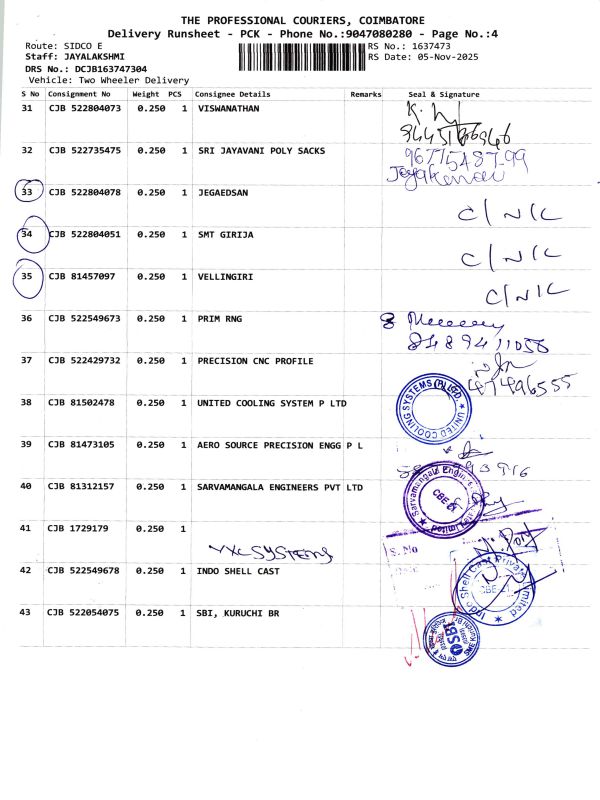 THE PROFESSIONAL COURIERS, COIMBATORE
Delivery Runsheet - PCK - Phone No.:9047080280 - Page No.:4
Route: SIDCO E
RS No.: 1637473
Staff: JAYALAKSHMI
RS Date: 05-Nov-2025
DRS No.: DCJB163747304
Vehicle: Two Wheeler Delivery
S No Consignment No Weight PCS Consignee Details Remarks Seal & Signature
31 CJB 522804073 0.250 1 VISWANATHAN
32 CJB 522735475 0.250 1 SRI JAYAVANI POLY SACKS
33 CJB 522804078 0.250 1 JEGAEDSAN
C/N/C
34 CJB 522804051 0.250 1 SMT GIRIJA
C/N/C
35 CJB 81457097 0.250 1 VELLINGIRI
C/N/C
36 CJB 522549673 0.250 1 PRIM RNG
8489411056
37 CJB 522429732 0.250 1 PRECISION CNC PROFILE
38 CJB 81502478 0.250 1 UNITED COOLING SYSTEM P LTD
UNITED COOLING SYSTEMS (P) LTD.
39 CJB 81473105 0.250 1 AERO SOURCE PRECISION ENGG P L
40 CJB 81312157 0.250 1 SARVAMANGALA ENGINEERS PVT LTD
Sarvamangala Engineers Private Limited
CBE-21
41 CJB 1729179 0.250 1
VXL SYSTEMS
S. No
42 CJB 522549678 0.250 1 INDO SHELL CAST
Indo Shell Cast Private Limited
CBE-21
43 CJB 522054075 0.250 1 SBI, KURUCHI BR
SBI